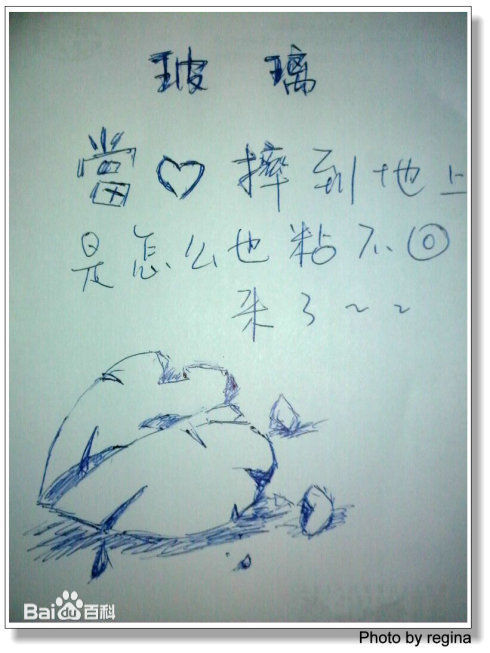 玻璃
當♡摔到地上
是怎么也粘不回
来了~~
Baidu百科
Photo by regina